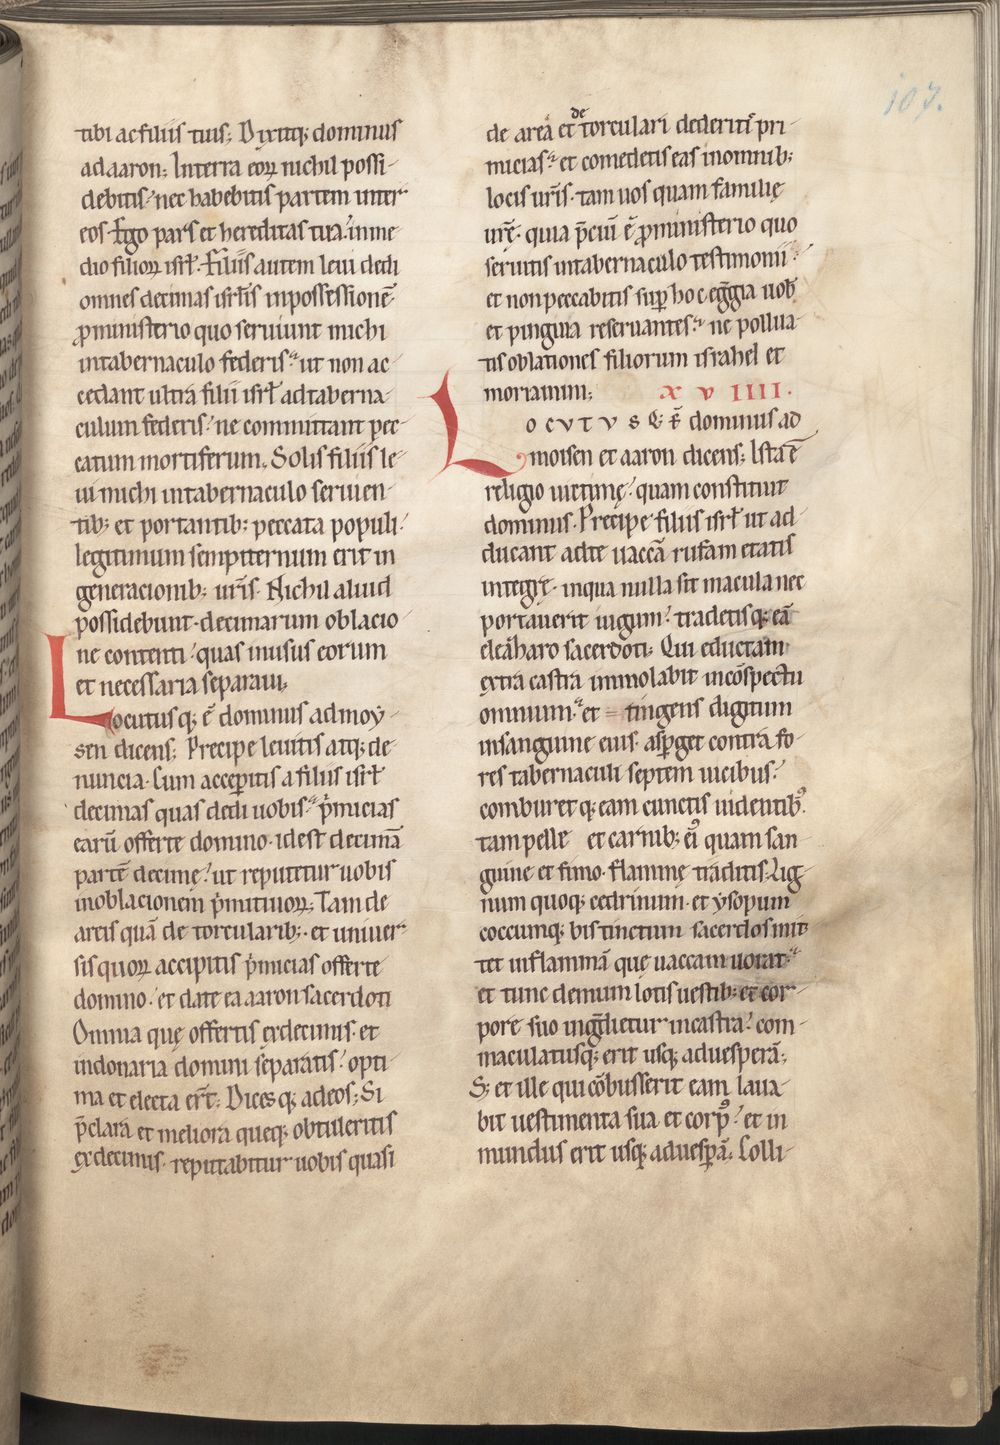 107.
tibi ac filiis tuis; Dixitq; dominus
ad aaron; In terra eoꝝ nichil possi-
debitis? nec habebitis partem inter
eos. Ego pars et hereditas tua. in me-
dio filioꝝ isrł. Filiis autem leui dedi
omnes decimas isrłis in possessionē.
ꝓministerio quo seruiunt michi
in tabernaculo federis. ut non ac-
cedant ultra filii isrł ad taberna-
culum federis? ne committant pec-
catum mortiferum. Solis filiis le-
ui michi in tabernaculo seruien-
tib; et portantib; peccata populi.
legitimum sempiternum erit in
generacionib; urīs. Nichil aliud
possidebunt. decimarum oblacio-
ne contenti? quas in usus eorum
et necessaria separaui.
Locutusq; ē dominus ad moẏ-
sen dicens; Precipe leuitis atq; de-
nuncia. Cum acceꝑitis a filiis isrł
decimas quas dedi uobis. p̄micias
earū offerte domino. id est decimā
partē decimę? ut reputetur uobis
in oblacionem p̄mitiuoꝝ; Tam de
areis quā de torcularib;. et uniuer-
sis quoꝝ accipitis p̄micias offerte
domino. et date ea aaron sacerdoti
Omnia quę offertis ex decimis. et
in donaria domini separatis? opti-
ma et electa er̄t; Dices q; ad eos; Si
p̄clara et meliora queq; obtuleritis
ex decimis. reputabitur uobis quasi
de
de area et torculari dederitis pri-
micias. et comedetis eas in omnib;
locis urīs. tam uos quam familię
urę̄. quia p̄ciū ē ꝓministerio quo
seruitis in tabernaculo testimonii.
et non peccabitis suꝑ hoc egr̄gia uob
et pinguia reseruantes. ne pollua-
tis oblationes filiorum israhel et
moriamini; XVIIII.
LOCVTVSQ; ē dominus ad
moisen et aaron dicens; Ista ē
religio uictimę? quam constituit
dominus. Precipe filiis isrł ut ad-
ducant ad te uaccā rufam etatis
integrę. in qua nulla sit macula nec
portauerit iugum? tradetisq; eā
eleaharo sacerdoti. Qui eductam
extra castra immolabit in cōspectu
omnium. et tingens digitum
in sanguine eius. asꝑget contra fo-
res tabernaculi septem uicibus?
comburet q; eam cunctis uidentib;
tam pelle et carnib; eī quam san-
guine et fimo. flammę traditis. Lig-
num quoq; cedrinum. et ẏsopum
coccumq; bis tinctum sacerdos mit-
tet in flammā que uaccam uorat.
et tunc demum lotis uestib; et cor-
pore suo ingr̄dietur in castra? com-
maculatusq; erit usq; ad uesperā;
S; et ille qui cōbusserit eam laua-
bit uestimenta sua et corp'? et in-
mundus erit usq; ad uesꝑā. Colli-